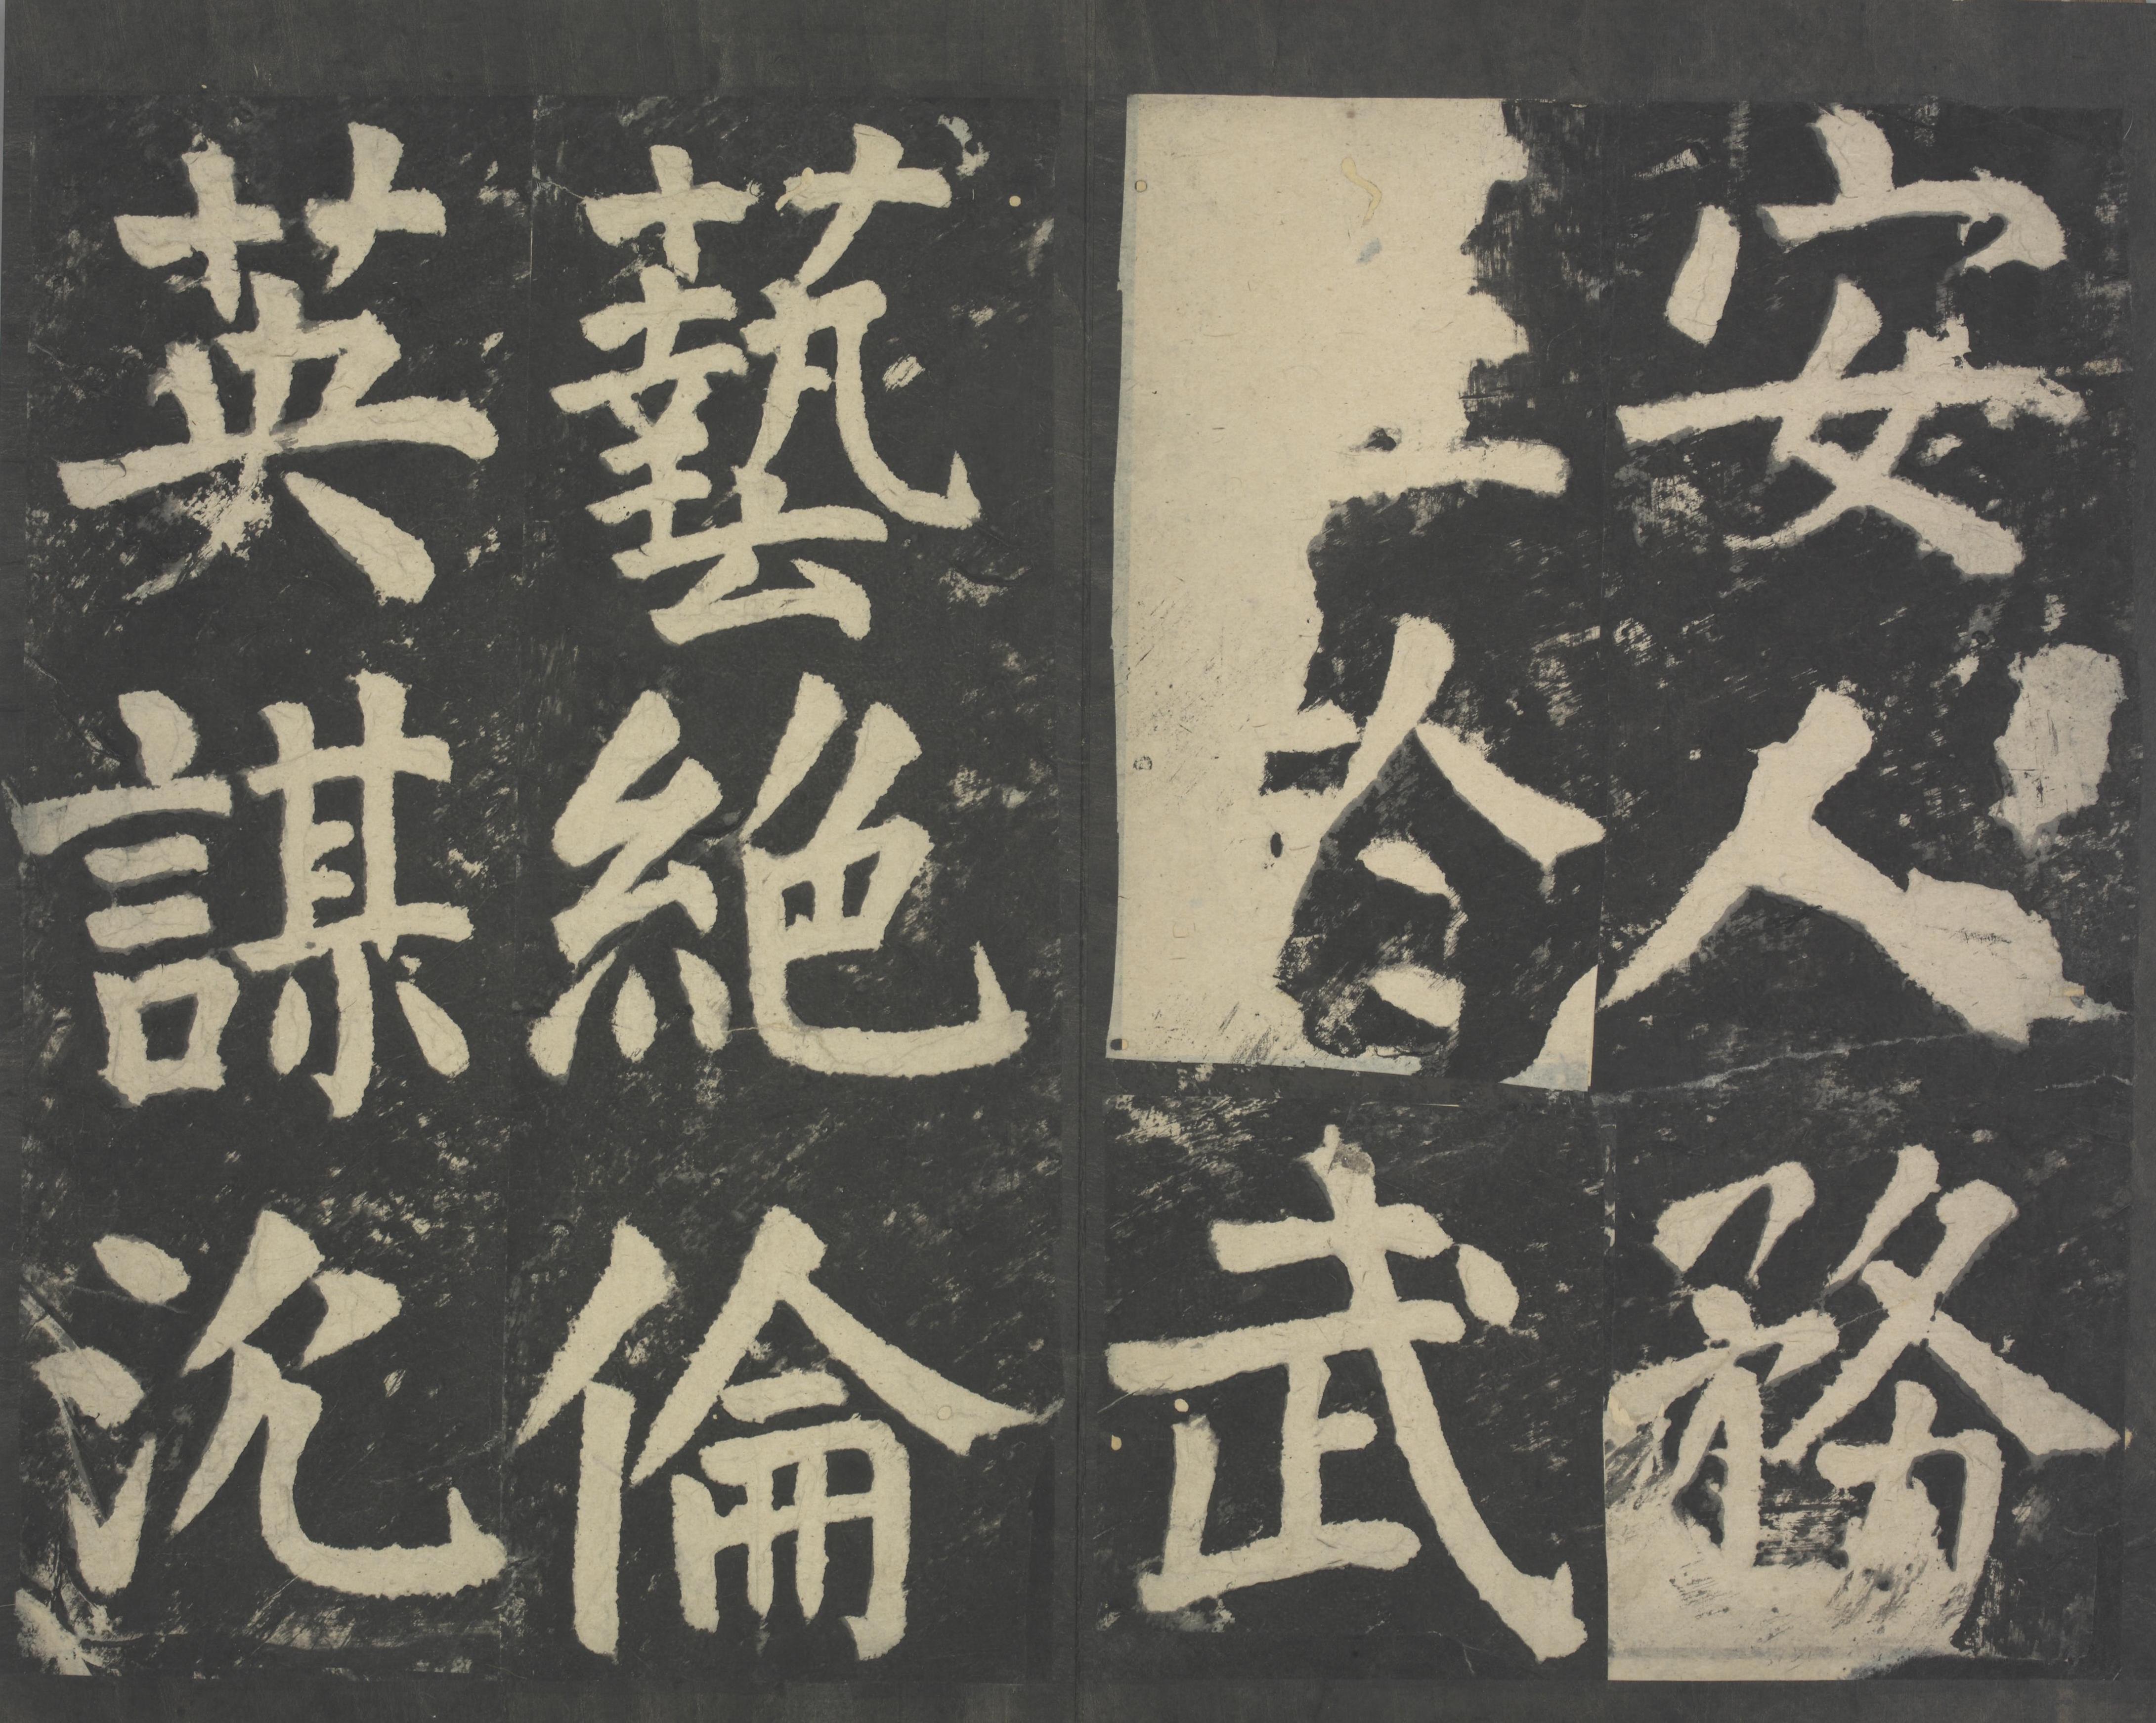 安人務
武
藝絕倫
英謀沈